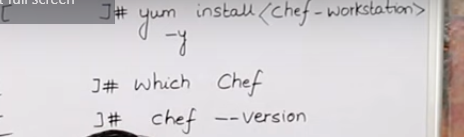 full screen
[ ]# yum install <chef-workstation>
-y
]# which Chef
]# chef --version